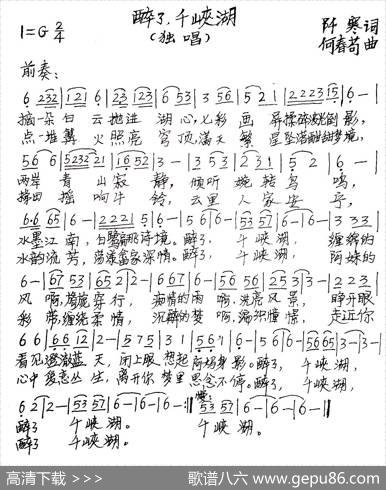 醉了,千峡湖
1=G 2/4
(独唱)
阡寒词
何春苟曲
前奏:
6 232 | 121 6 | 23 123 | 6 53 | 3 56 | 5 2 1 | 2223 15 | 6 - |
摘一朵白云抛进湖心,七彩画屏揉碎倒影,
点一堆篝火照亮穹顶,满天繁星坠落的梦境,
56 6 | 5232 21 | 16 52 | 3 - | 3 53 | 2 31 | 5 2 | 6 - |
两岸青山寂静,倾听婉转鸟鸣,
响牛铃,云里人家安宁,
6·6 65 | 6 - | 2221 5 | 6 - | 5 6 | 6 - | 53 57 | 6 - | 6 - | 3 3 3 |
水墨江南,那诗境。醉了,千峡湖,缠绵的
水韵流芳,家深情。醉了,千峡湖,阿妹的
6 - | 67 53 | 65 2 | 2 - | 6 67 | 6 - | 56 56 | 25 3 | 3 - | 2 2 3 |
风啊,穿行,痴情的雨啊,洗亮风景,睁开眼
彩带,缠绕柔情,沉醉的梦啊,编织憧憬,走近你
6 6 | 66 12 | 2 - | 5 75 | 3 1 | 5 67 | 6 - | 5 6 | 6 - | 56 65 | 3 - | 3 - |
看见澄澈蓝天,闭上眼想起阿妈身影。醉了,千峡湖,
心中爱恋丛生,离开你梦里思念不停。醉了,千峡湖,
6 2 | 2 - | 53 57 | 6 - | 6 - | 6 - :|| 53 57 | 6 - | 6 - | 6 - | 6 - ||
醉了千峡湖。千峡湖。
醉了千峡湖。
高清下载 >>>
歌谱八六 www.gepu86.com